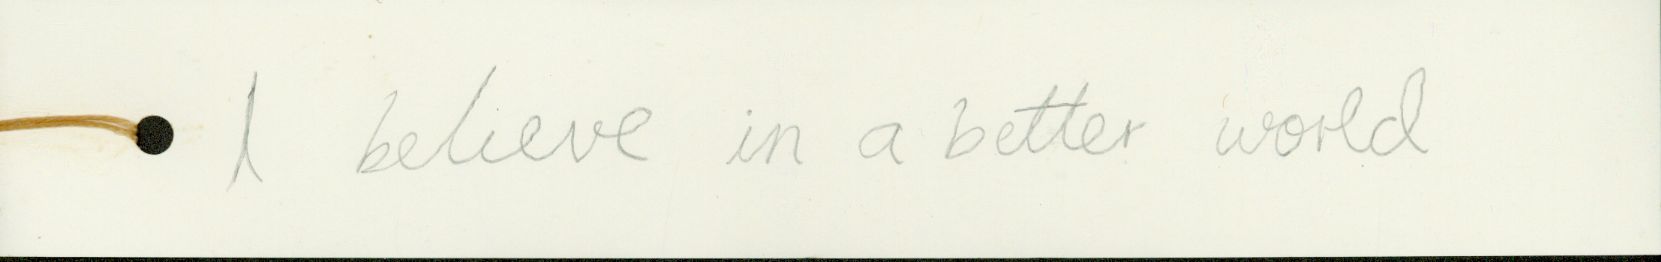 I believe in a better world